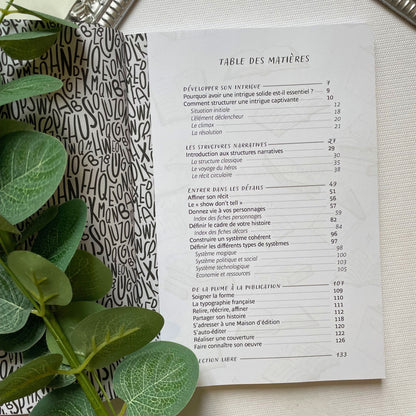 TABLE DES MATIÈRES
DÉVELOPPER SON INTRIGUE 7
Pourquoi avoir une intrigue solide est-il essentiel ? 9
Comment structurer une intrigue captivante 10
Situation initiale 12
L'élément déclencheur 18
Le climax 20
La résolution 21
LES STRUCTURES NARRATIVES 27
Introduction aux structures narratives 29
La structure classique 30
Le voyage du héros 35
Le récit circulaire 38
ENTRER DANS LES DÉTAILS 49
Affiner son récit 51
Le « show don't tell » 56
Donnez vie à vos personnages 57
Index des fiches personnages 59
Définir le cadre de votre histoire 82
Index des fiches décors 84
Construire un système cohérent 96
Définir les différents types de systèmes 97
Système magique 98
Système politique et social 100
Système technologique 103
Économie et ressources 105
DE LA PLUME À LA PUBLICATION 107
Soigner la forme 109
La typographie française 110
Relire, réécrire, affiner 111
Partager son histoire 118
S'adresser à une Maison d'édition 118
S'auto-éditer 120
Réaliser une couverture 122
Faire connaître son oeuvre 126
ECTION LIBRE 133